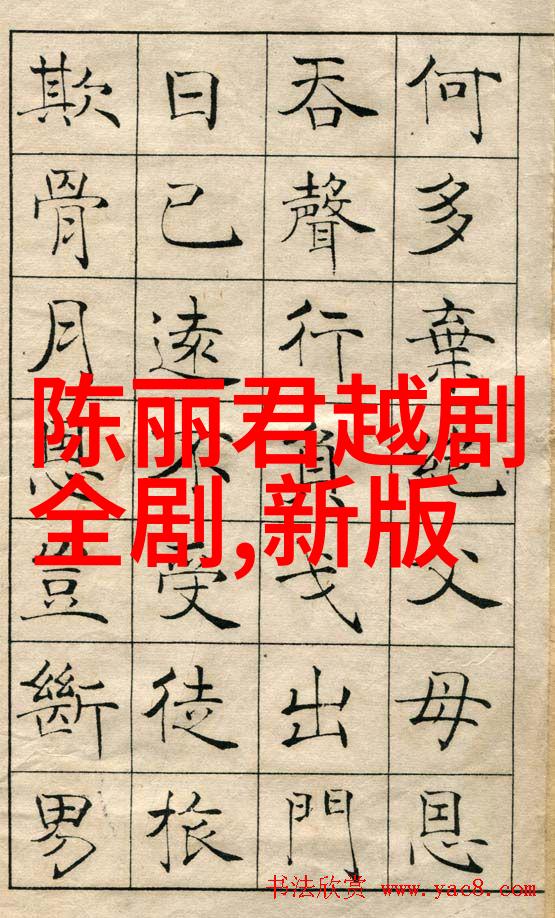 何多棄絕父母恩
吞聲行負戈出門
日已遠不受徒旅
欺骨月恩豈斷男
陈丽君越剧
全剧,新版
书法欣赏 www.yac8.com